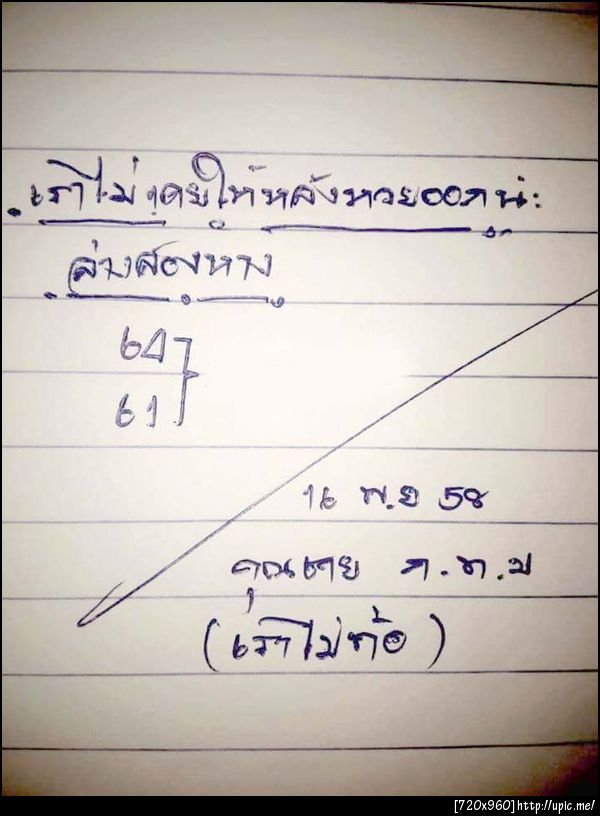 เราไม่เคยให้หลังหวยออกนะ
ล่างสองหาง
64
61
16 พ.ย 58
คุณชาย ก.ท.ม
(เราไม่ท้อ)
[720x960]http://upic.me/